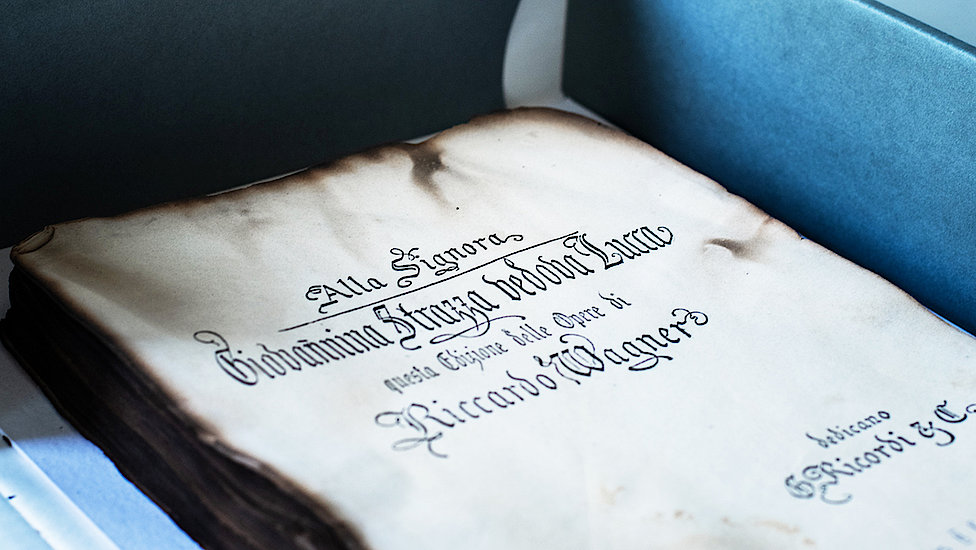 Alla Signora
Giovannina Strazza vedova Lucca
questa Edizione delle Opere di
Riccardo Wagner
dedicano
G. Ricordi & C.